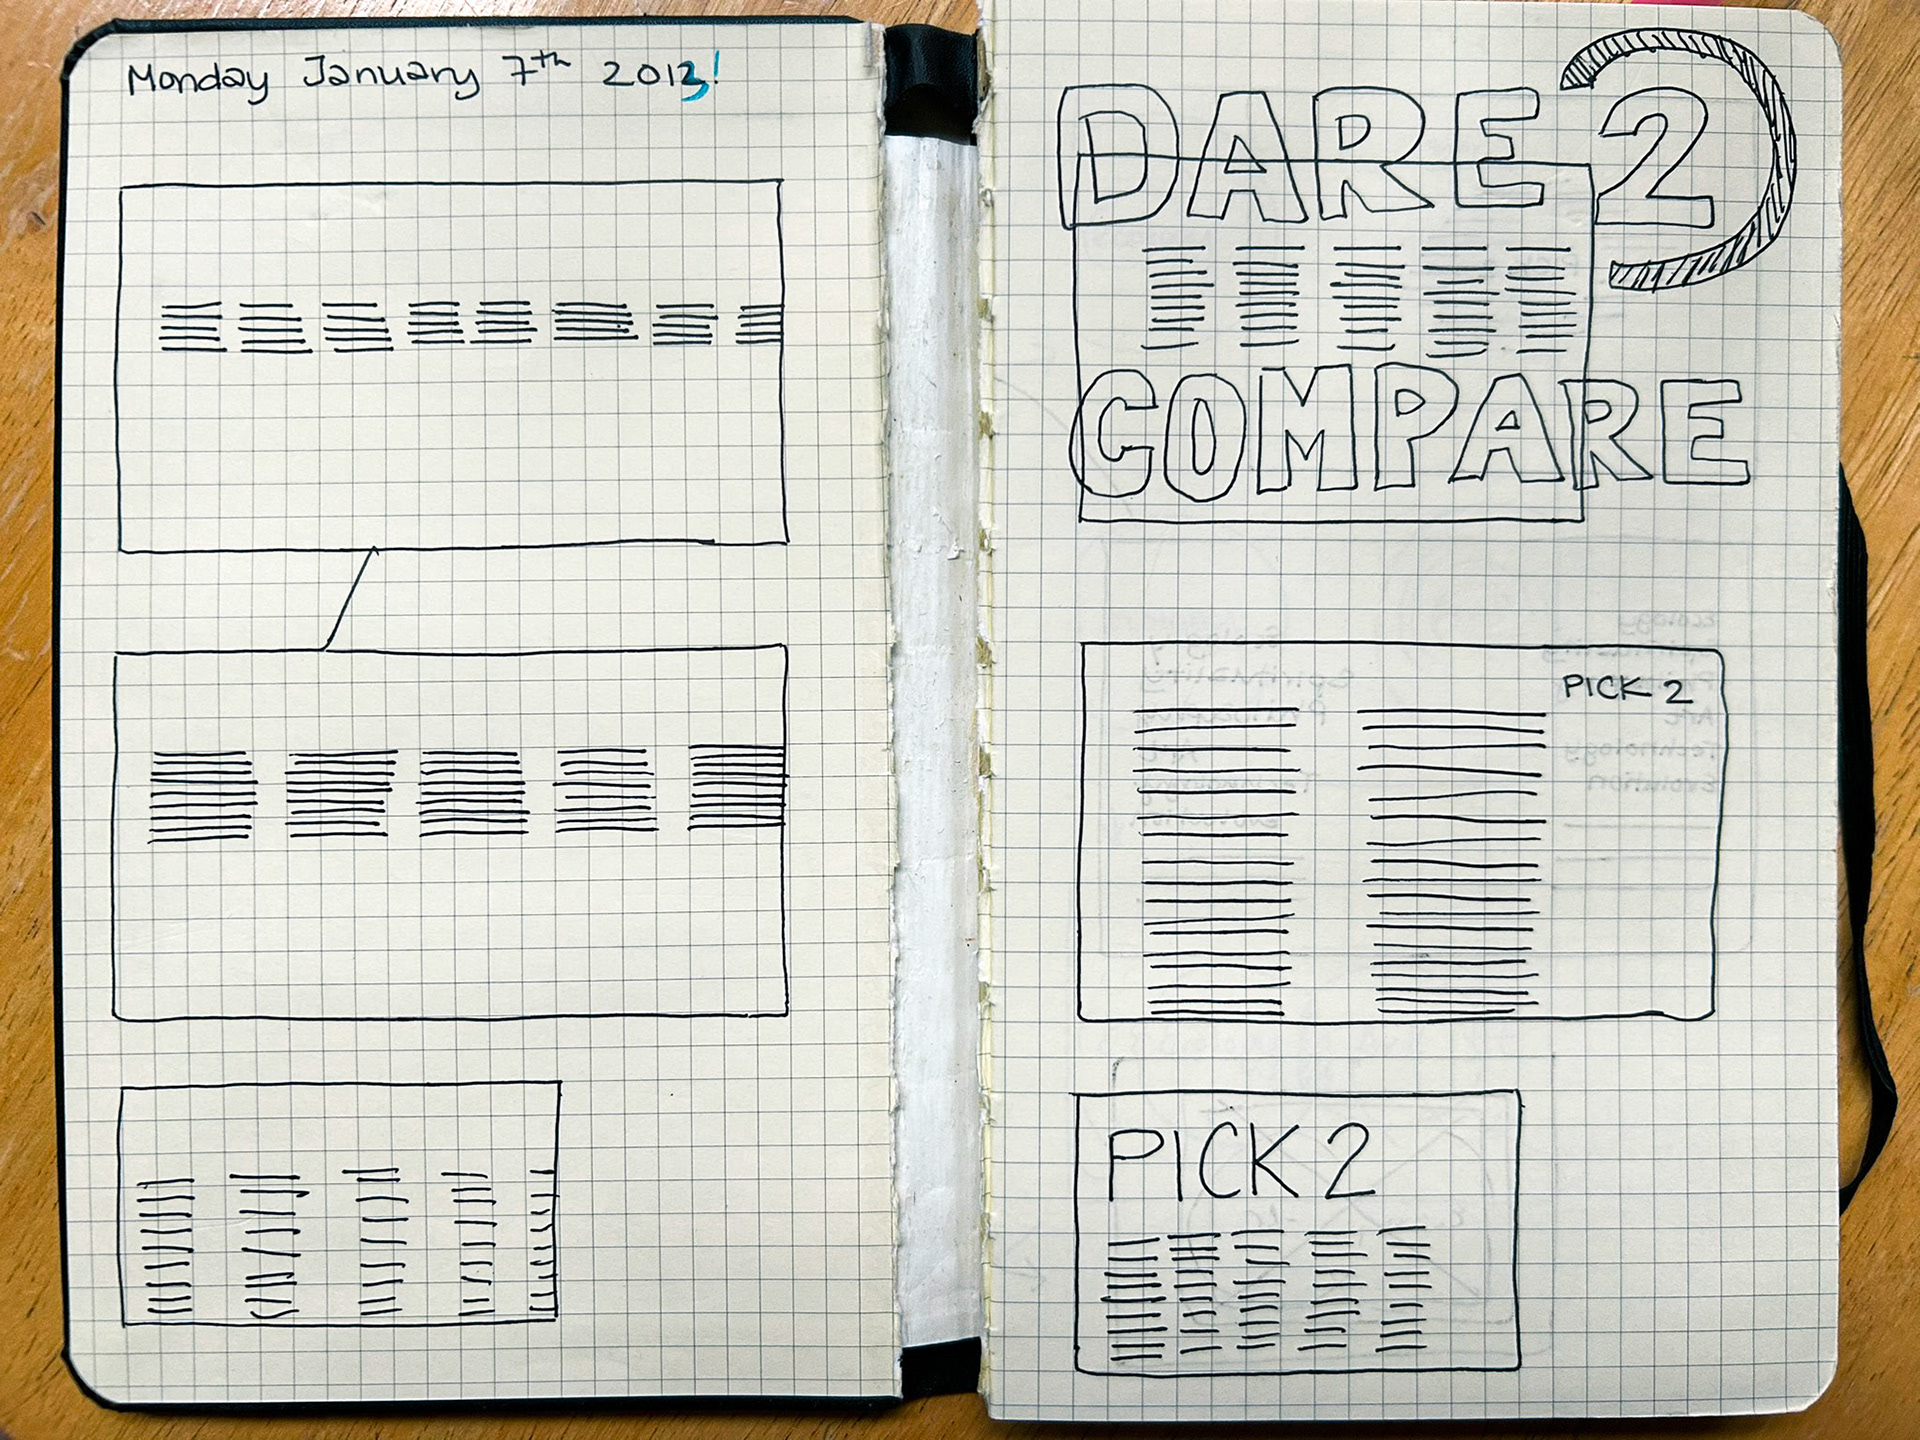 Monday January 7th 2013!
DARE 2
COMPARE
PICK 2
PICK 2